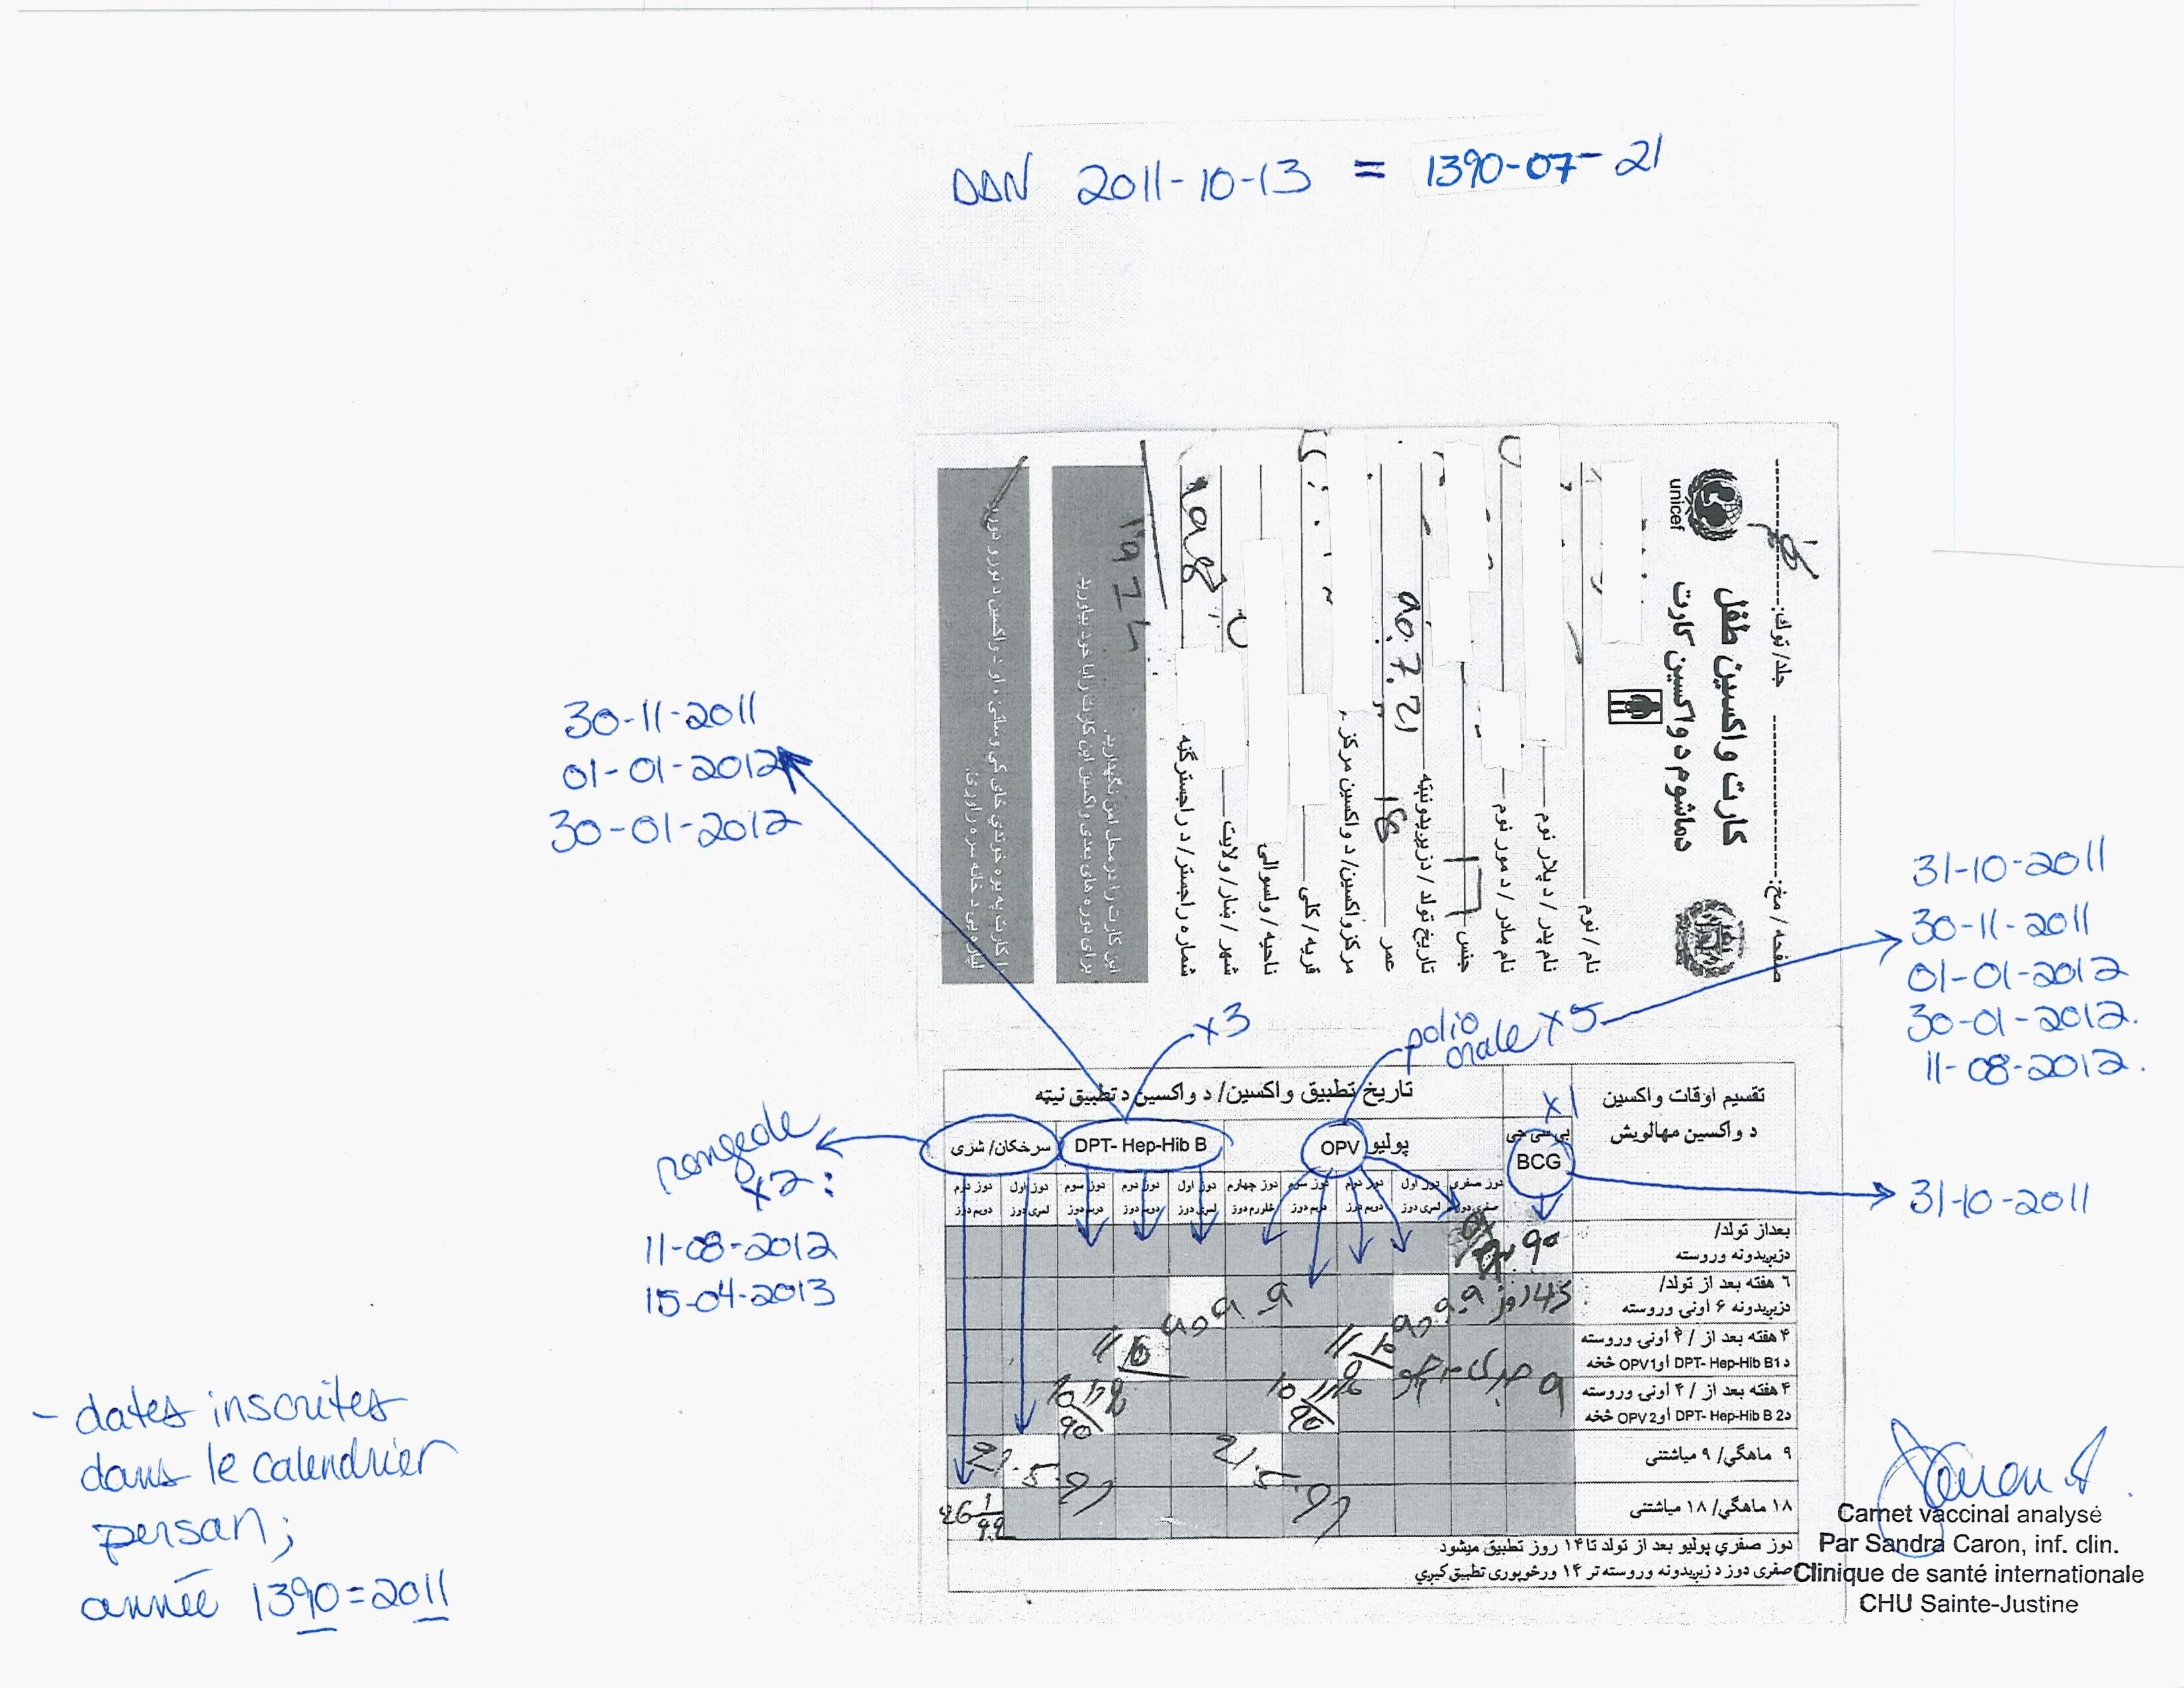 DDN 2011-10-13 = 1390-07-21
جلد / توک:
صفحه / مخ:
unicef
کارت واکسین طفل
دماشوم د واکسین کارت
نام / نوم
نام پدر / د پلار نوم
نام مادر / د مور نوم
جنس
تاریخ تولد / دزیږیدو نیټه
90.7.21
عمر
مرکز واکسین / د واکسین مرکز
قریه / کلی
ناحیه / ولسوالی
شهر / ښار / ولایت
شماره راجستر / د راجستر ګڼه
این کارت را در محل امن نگهدارید.
برای دوره های بعدی واکسین این کارت را با خود بیاورید
30-11-2011
01-01-2012
30-01-2012
31-10-2011
30-11-2011
01-01-2012
30-01-2012.
11-08-2012.
x3
polio orale x5
x1
31-10-2011
rougeole
x2:
11-08-2012
15-04-2013
تقسیم اوقات واکسین
د واکسین مهالویش
تاریخ تطبیق واکسین/ د واکسین د تطبیق نیټه
بی سی جی
BCG
پولیو OPV
DPT- Hep-Hib B
سرخکان/ شری
دوز صفری
دوز اول لمړی دوز
دوز دوم دویم دوز
دوز سوم
دوز چهارم څلورم دوز
دوز اول لمړی دوز
دوز دوم دویم دوز
دوز سوم دریم دوز
دوز اول لمړی دوز
دوز دوم دویم دوز
بعداز تولد/
دزیږیدونه وروسته
90
۶ هفته بعد از تولد/
دزیږیدونه ۶ اونی وروسته
45 روز
۴ هفته بعد از / ۴ اونی وروسته
د DPT- Hep-Hib B1 او OPV1 څخه
۴ هفته بعد از / ۴ اونی وروسته
د DPT- Hep-Hib B 2 او OPV 2 څخه
۹ ماهګی/ ۹ میاشتنی
21.5.
21.5.
۱۸ ماهګی/ ۱۸ میاشتنی
دوز صفری پولیو بعد از تولد تا ۱۴ روز تطبیق میشود
صفری دوز د زیږیدونه وروسته تر ۱۴ ورځو پوری تطبیق کیږی
- dates inscrites
dans le calendrier
persan;
année 1390=2011
Carnet vaccinal analysé
Par Sandra Caron, inf. clin.
Clinique de santé internationale
CHU Sainte-Justine